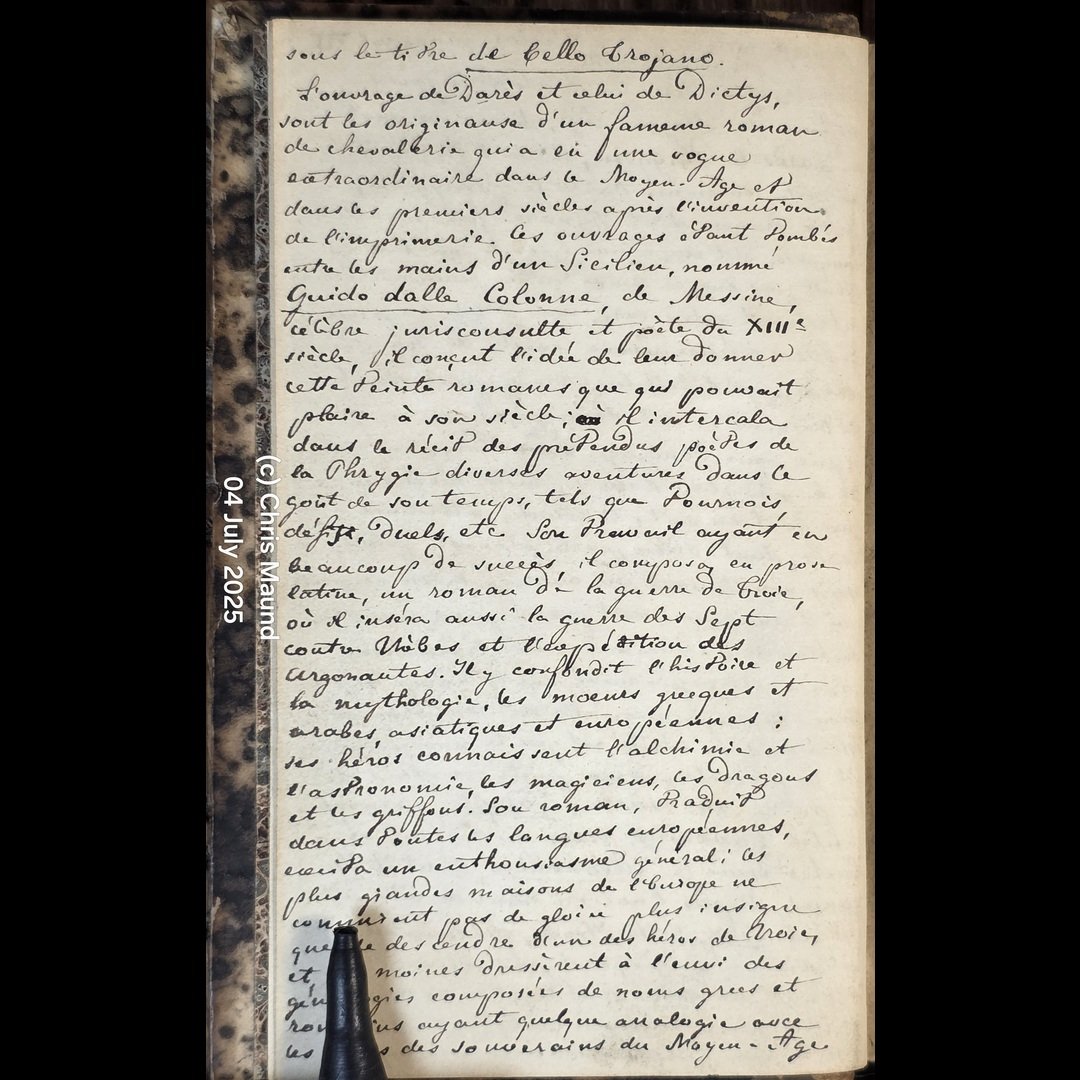 sous le titre de bello Trojano.
L'ouvrage de Darès et celui de Dictys,
sont les originause d'un fameuse roman
de chevalerie qui a eu une vogue
extraordinaire dans le Moyen-Age et
dans les premiers siècles après l'invention
de l'imprimerie. Ces ouvrages étant tombés
entre les mains d'un Sicilien, nommé
Guido dalle Colonne, de Messine,
célèbre jurisconsulte et poète du XIIIe
siècle, il conçut l'idée de leur donner
cette teinte romanesque qui pouvait
plaire à son siècle; il intercala
dans le récit des prétendus poètes de
la Phrygie diverses aventures dans le
goût de son temps, tels que tournois,
défis, duels, etc. Son travail ayant eu
beaucoup de succès, il composa, en prose
latine, un roman de la guerre de Troie,
où il inséra aussi la guerre des Sept
contre Thèbes et l'expédition des
Argonautes. Il y confondit l'histoire et
la mythologie, les moeurs grecques et
arabes, asiatiques et européennes ;
ses héros connaissent l'alchimie et
l'astronomie, les magiciens, les dragons
et les griffons. Son roman, traduit
dans toutes les langues européennes,
excita un enthousiasme général; les
plus grandes maisons de l'Europe ne
connurent pas de gloire plus insigne
que de descendre d'un des héros de Troie,
et moines dressèrent à l'envi des
composées de noms grecs et
ayant quelque analogie avec
les des souverains du Moyen-Age
(c) Chris Maund
04 July 2025